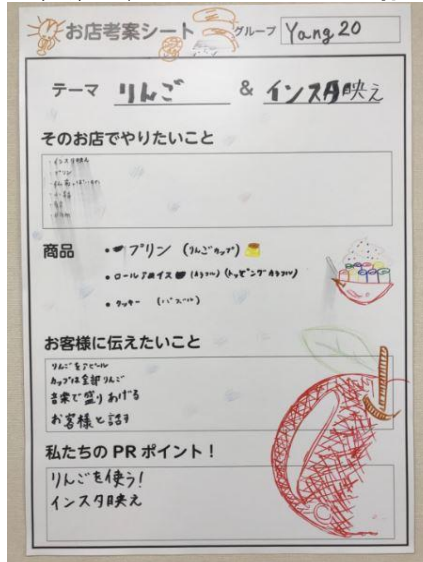 お店考案シート
グループ Yang 20
テーマ りんご & インスタ映え
そのお店でやりたいこと
・インスタ映え
・プリン
商品
・プリン (りんごカップ)
・ロールアイス (カラフル) (トッピングカラフル)
・クッキー
お客様に伝えたいこと
りんごをアピール
カップは全部りんご
音楽で盛りあげる
お客様と話す
私たちの PR ポイント!
りんごを使う!
インスタ映え